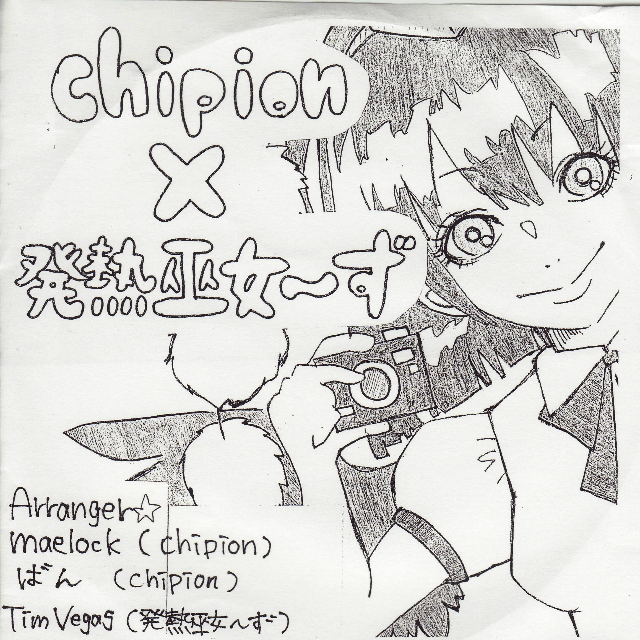 chipion
×
発熱巫女〜ず
Arranger☆
maelock (chipion)
ばん (chipion)
Tim Vegas (発熱巫女〜ず)